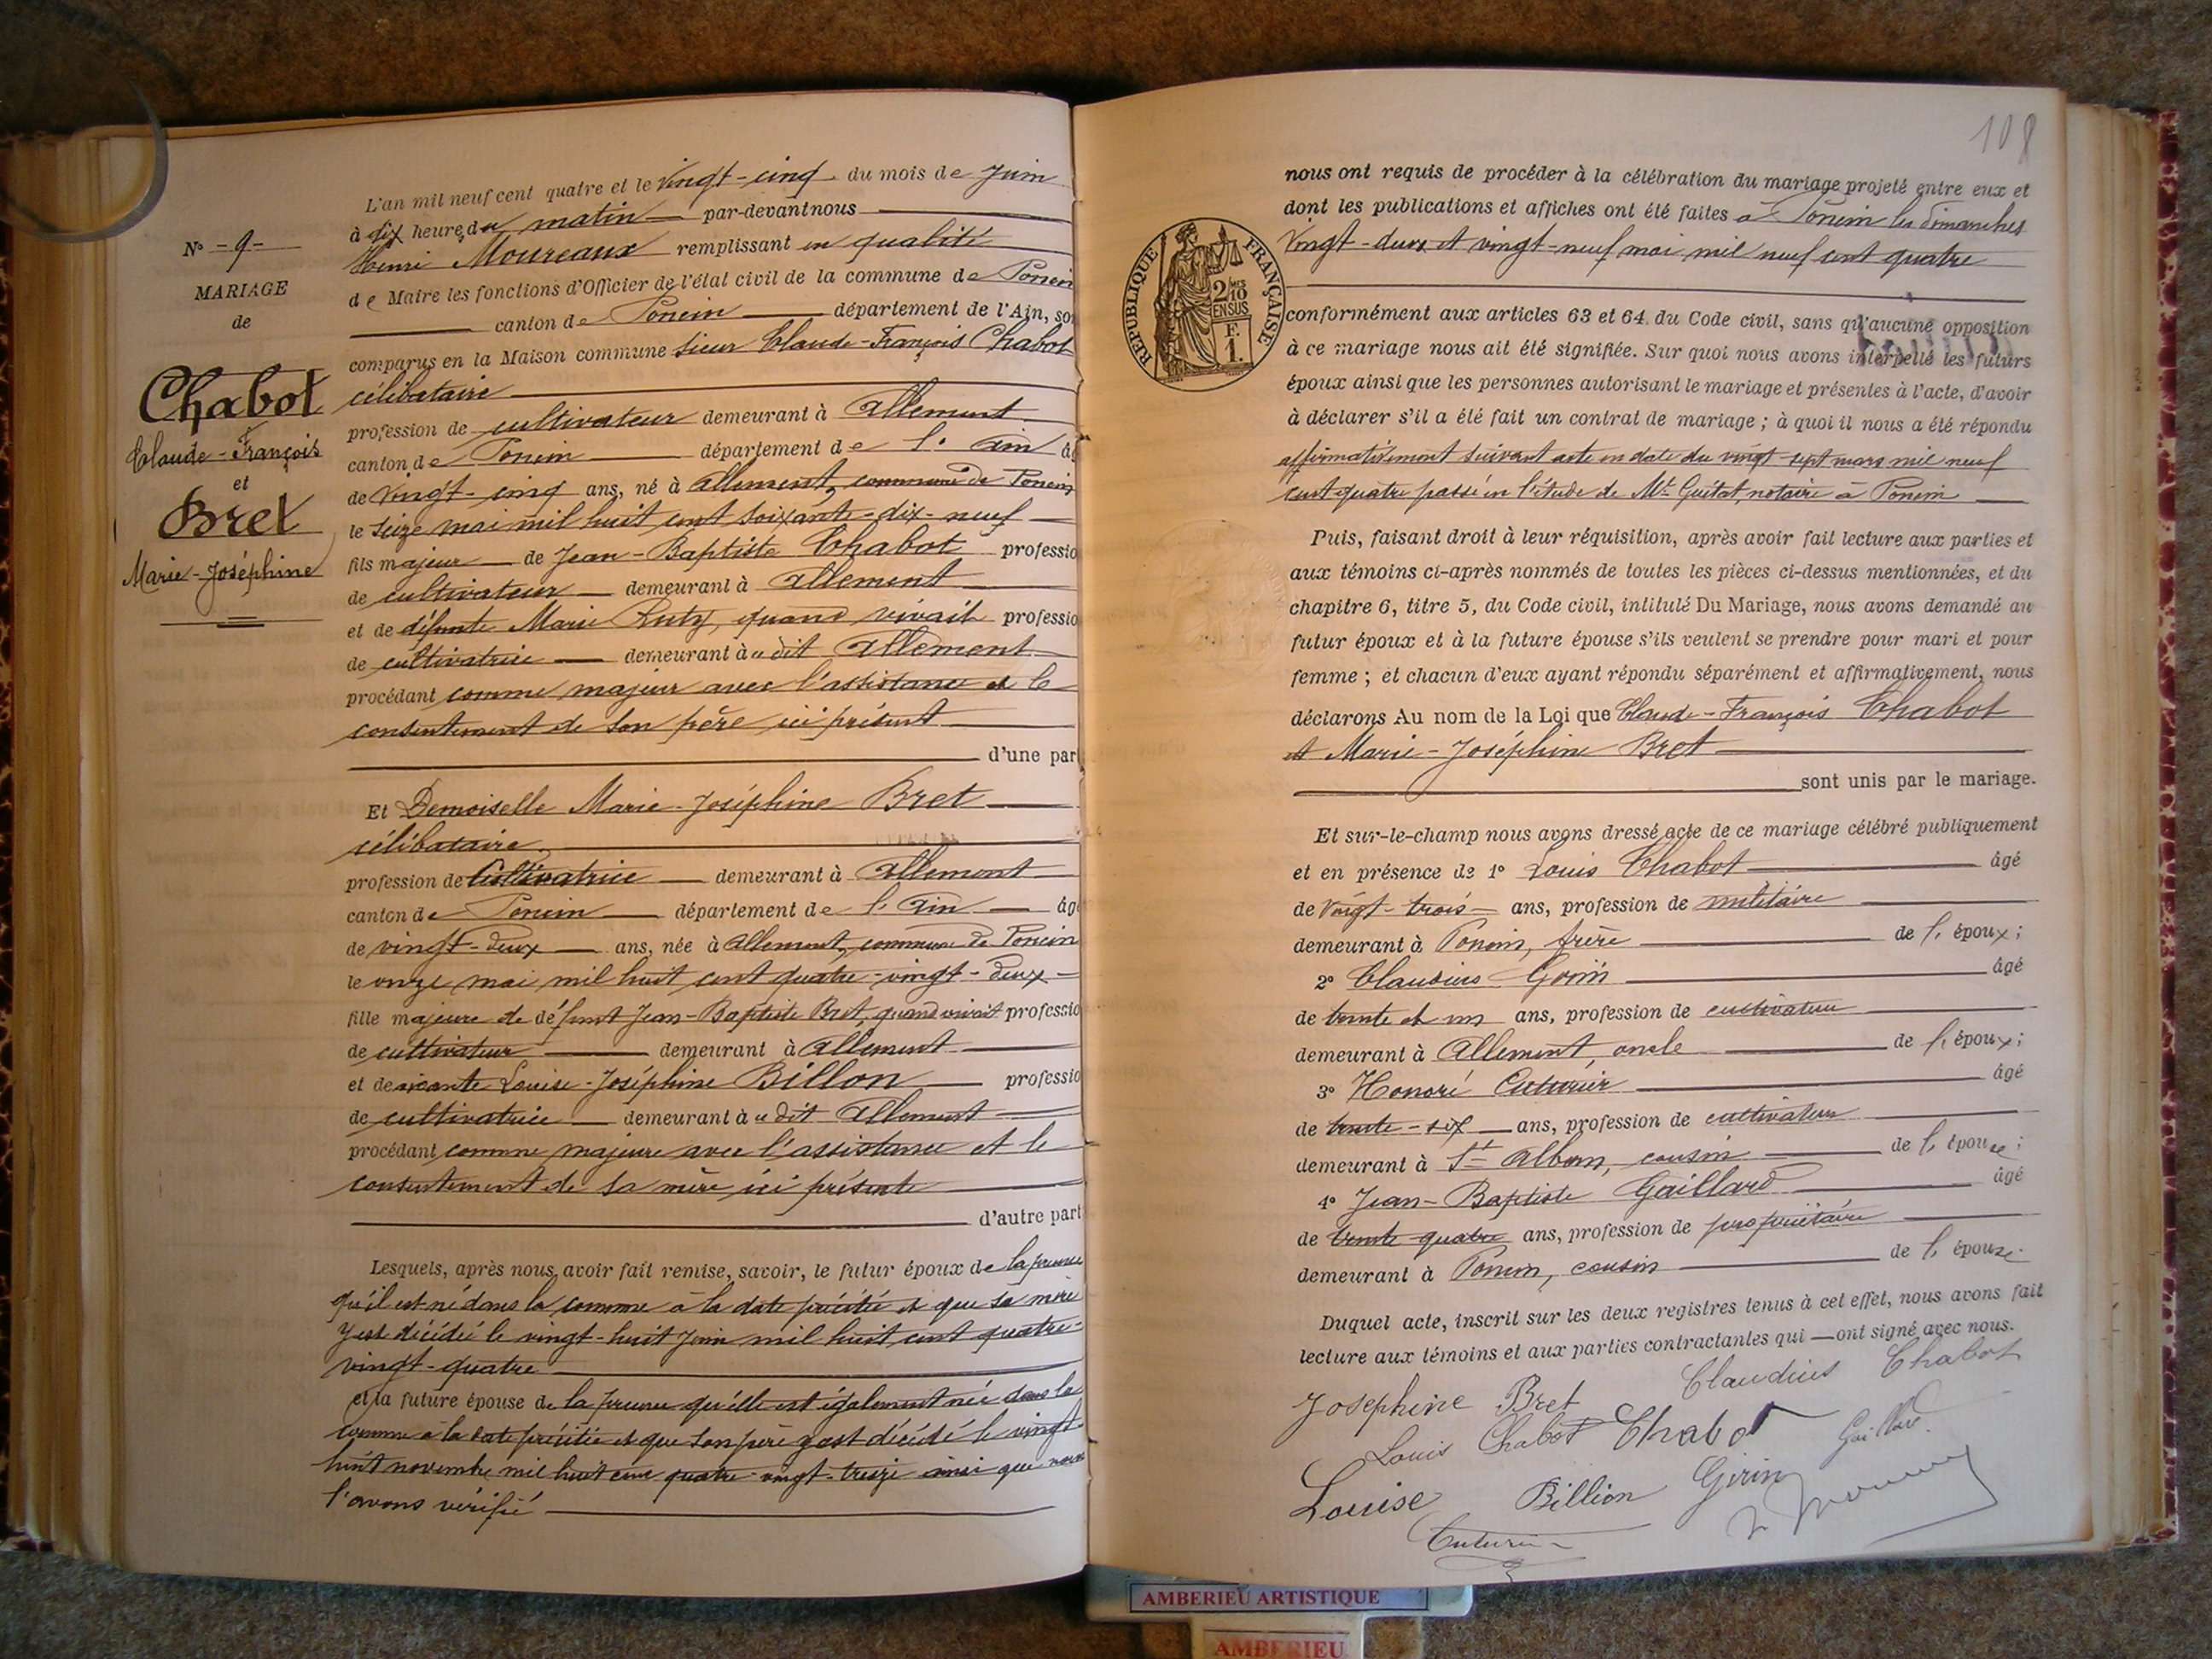 L'an mil neuf cent quatre et le vingt-cinq du mois de Juin
à dix heures du matin par-devant nous
Henri Moureaux remplissant en qualité
de Maire les fonctions d'Officier de l'état civil de la commune de Poncin
canton de Poncin département de l'Ain, so
comparus en la Maison commune sieur Claude-François Chabot
célibataire
profession de cultivateur demeurant à Allement
canton de Poncin département de l'Ain âg
de vingt-cinq ans, né à Allement, commune de Poncin
le seize mai mil huit cent soixante-dix-neuf
fils majeur de Jean-Baptiste Chabot professio
de cultivateur demeurant à Allement
et de défunte Marie quand vivait professio
de cultivatrice demeurant au dit Allement
procédant comme majeur avec l'assistance et le
consentement de son père ici présent
d'une part
Et Demoiselle Marie-Joséphine Bret
célibataire
profession de Cultivatrice demeurant à Allement
canton de Poncin département de l'Ain âg
de vingt-deux ans, née à Allement, commune de Poncin
le onze mai mil huit cent quatre-vingt-deux
fille majeure de défunt Jean-Baptiste Bret, quand vivait professio
de cultivateur demeurant à Allement
et de vivante Louise-Joséphine Billon professio
de cultivatrice demeurant au dit Allement
procédant comme majeure avec l'assistance et le
consentement de sa mère ici présente
d'autre part
Lesquels, après nous avoir fait remise, savoir, le futur époux de la preuve
qu'il est né dans la commune à la date précitée et que sa mère
y est décédée le vingt-huit Juin mil huit cent quatre-
vingt-quatre
et la future épouse de la preuve qu'elle est également née dans la
commune à la date précitée et que son père y est décédé le vingt-
huit novembre mil huit cent quatre-vingt-treize ainsi que nous
l'avons vérifié
N° -9-
MARIAGE
de
Chabot
Claude-François
et
Bret
Marie-Joséphine
108
nous ont requis de procéder à la célébration du mariage projeté entre eux et
dont les publications et affiches ont été faites à Poncin les dimanches
vingt-deux et vingt-neuf mai mil neuf cent quatre
RÉPUBLIQUE FRANÇAISE
2/10
EN SUS
F.
1.
conformément aux articles 63 et 64 du Code civil, sans qu'aucune opposition
à ce mariage nous ait été signifiée. Sur quoi nous avons interpellé les futurs
époux ainsi que les personnes autorisant le mariage et présentes à l'acte, d'avoir
à déclarer s'il a été fait un contrat de mariage ; à quoi il nous a été répondu
affirmativement suivant acte en date du vingt-sept mars mil neuf
cent quatre passé en l'étude de Mt Guitat, notaire à Poncin
Puis, faisant droit à leur réquisition, après avoir fait lecture aux parties et
aux témoins ci-après nommés de toutes les pièces ci-dessus mentionnées, et du
chapitre 6, titre 5, du Code civil, intitulé Du Mariage, nous avons demandé au
futur époux et à la future épouse s'ils veulent se prendre pour mari et pour
femme ; et chacun d'eux ayant répondu séparément et affirmativement, nous
déclarons Au nom de la Loi que Claude-François Chabot
et Marie-Joséphine Bret
sont unis par le mariage.
Et sur-le-champ nous avons dressé acte de ce mariage célébré publiquement
et en présence de 1° Louis Chabot âgé
de vingt-trois ans, profession de militaire
demeurant à Poncin, frère de l'époux ;
2° Claudius Girin âgé
de trente et un ans, profession de cultivateur
demeurant à Allement, oncle de l'époux ;
3° Honoré Cuturier âgé
de trente-six ans, profession de cultivateur
demeurant à St Alban, cousin de l'épouse ;
4° Jean-Baptiste Gaillard âgé
de trente quatre ans, profession de propriétaire
demeurant à Poncin, cousin de l'épouse.
Duquel acte, inscrit sur les deux registres tenus à cet effet, nous avons fait
lecture aux témoins et aux parties contractantes qui ont signé avec nous.
Josephine Bret Claudius Chabot
Louis Chabot Chabot Gaillard
Louise Billion Girin
Cuturier
AMBERIEU ARTISTIQUE
AMBERIEU